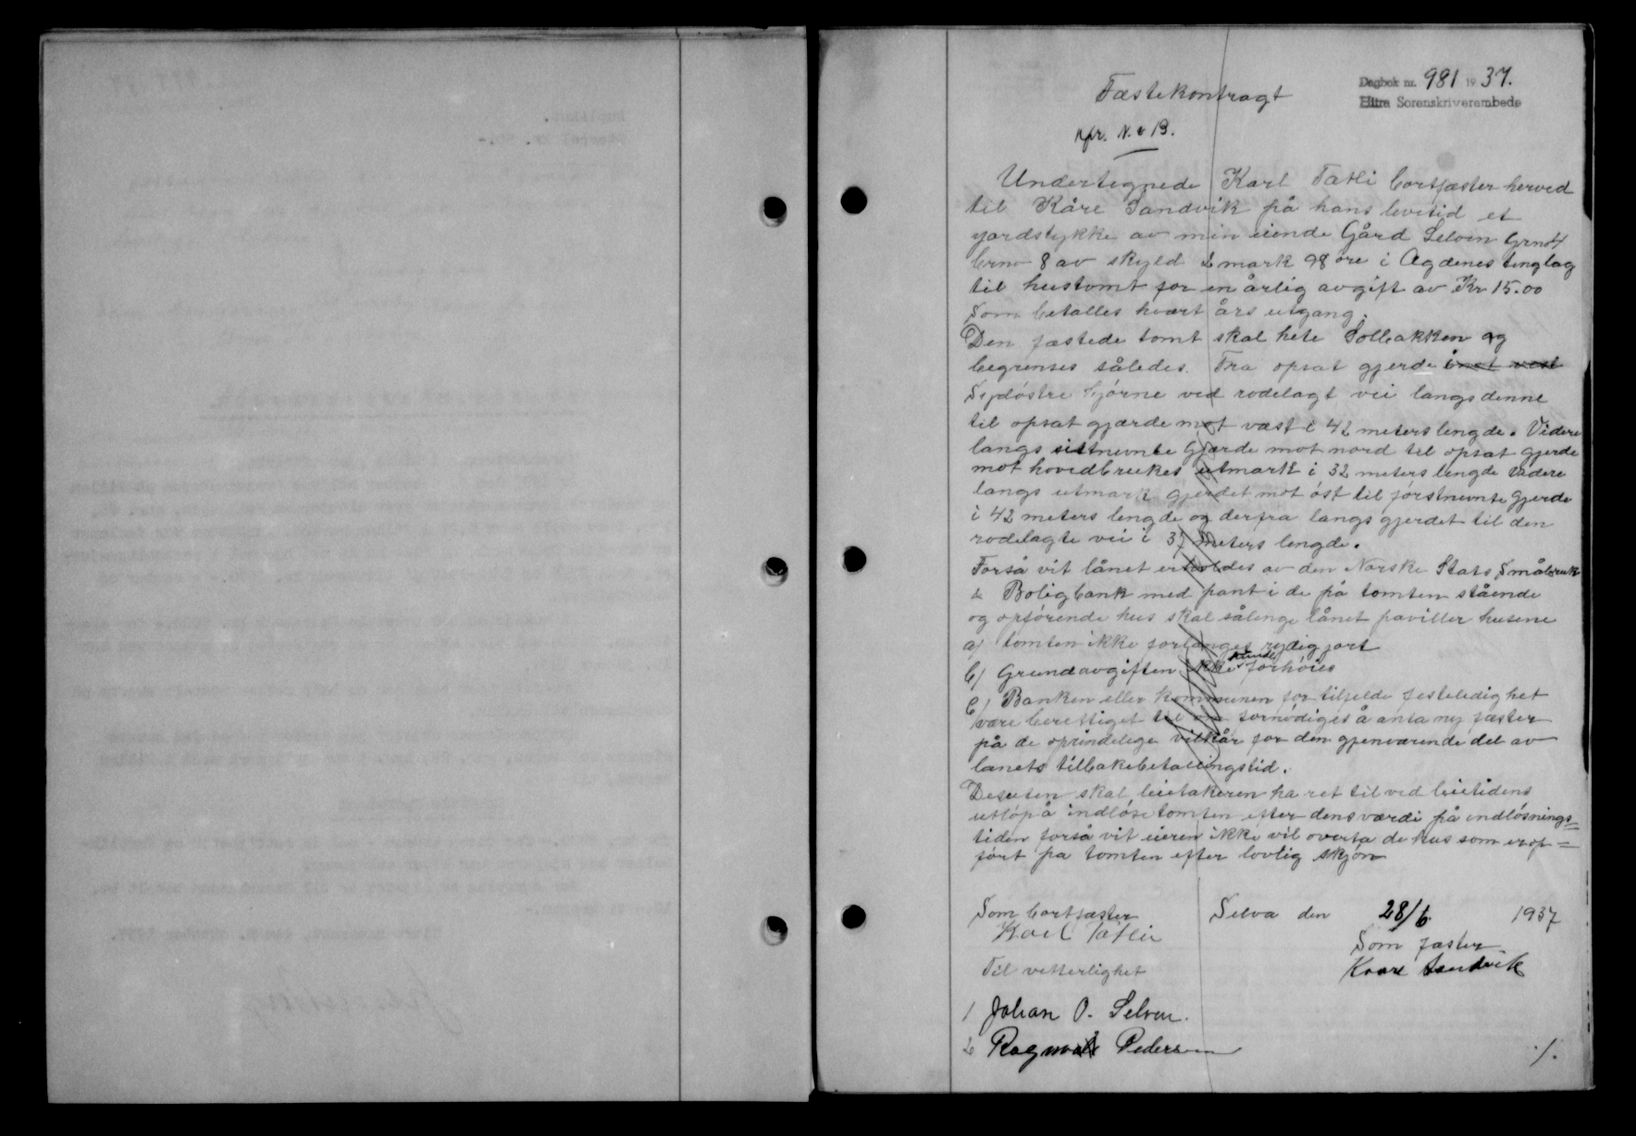 Dagbok nr. 981 1937.
Hitra Sorenskriverembede
Fæstekontragt
nfr. N.B.
Undertegnede Karl Tætli bortfæster herved
til Kåre Sandvik på hans levetid et
jordstykke av min eiende Gård Selven Grno 4
brno 8 av skyld 2 mark 98 øre i Agdenes tinglag
til hustomt for en årlig avgift av Kr 15.00
Som betalles hvært års utgang.
Den fæstede tomt skal hete Solbakken og
begrenses således. Fra opsat gjerde i mot vest
Sydøstre hjørne ved rodelagt vei langs denne
til opsat gjærde mot væst i 42 meters lengde. Videre
langs sistnevnte Gjærde mot nord til opsat gjerde
mot hovedbrukes utmark i 32 meters lengde videre
langs utmark gjerdet mot øst til førstnevnte gjerde
i 42 meters lengde og derfra langs gjerdet til den
rodelagte vei i 37 meters lengde.
Forså vit lånet erholdes av den Norske Stats Småbruk
& Boligbank med pant i de på tomten stående
og opførende hus skal sålenge lånet påviller husene
a) tomten ikke forlanges rydig jort
b) Grundavgiften ikke kunde forhøies
c) Banken eller kommunen for tilfelde festeledighet
være berettiget til om fornødiges å anta ny fæster
på de oprindelige vilkår for den gjenværende del av
lånets tilbakebetalingstid.
Desuten skal leietakeren ha ret til ved leietidens
utløp å indløse tomten efter dens værdi på indløsnings=
tiden forså vit eieren ikke vil overta de hus som er op=
ført på tomten efter lovlig skjøn
Som bortfæster Selva den 28/6 1937
Karl Tætlie Som fæster
Til vetterlighet Kaare Sandvik
1 Johan O. Selven.
2 Ragnvald Pedersen
./.